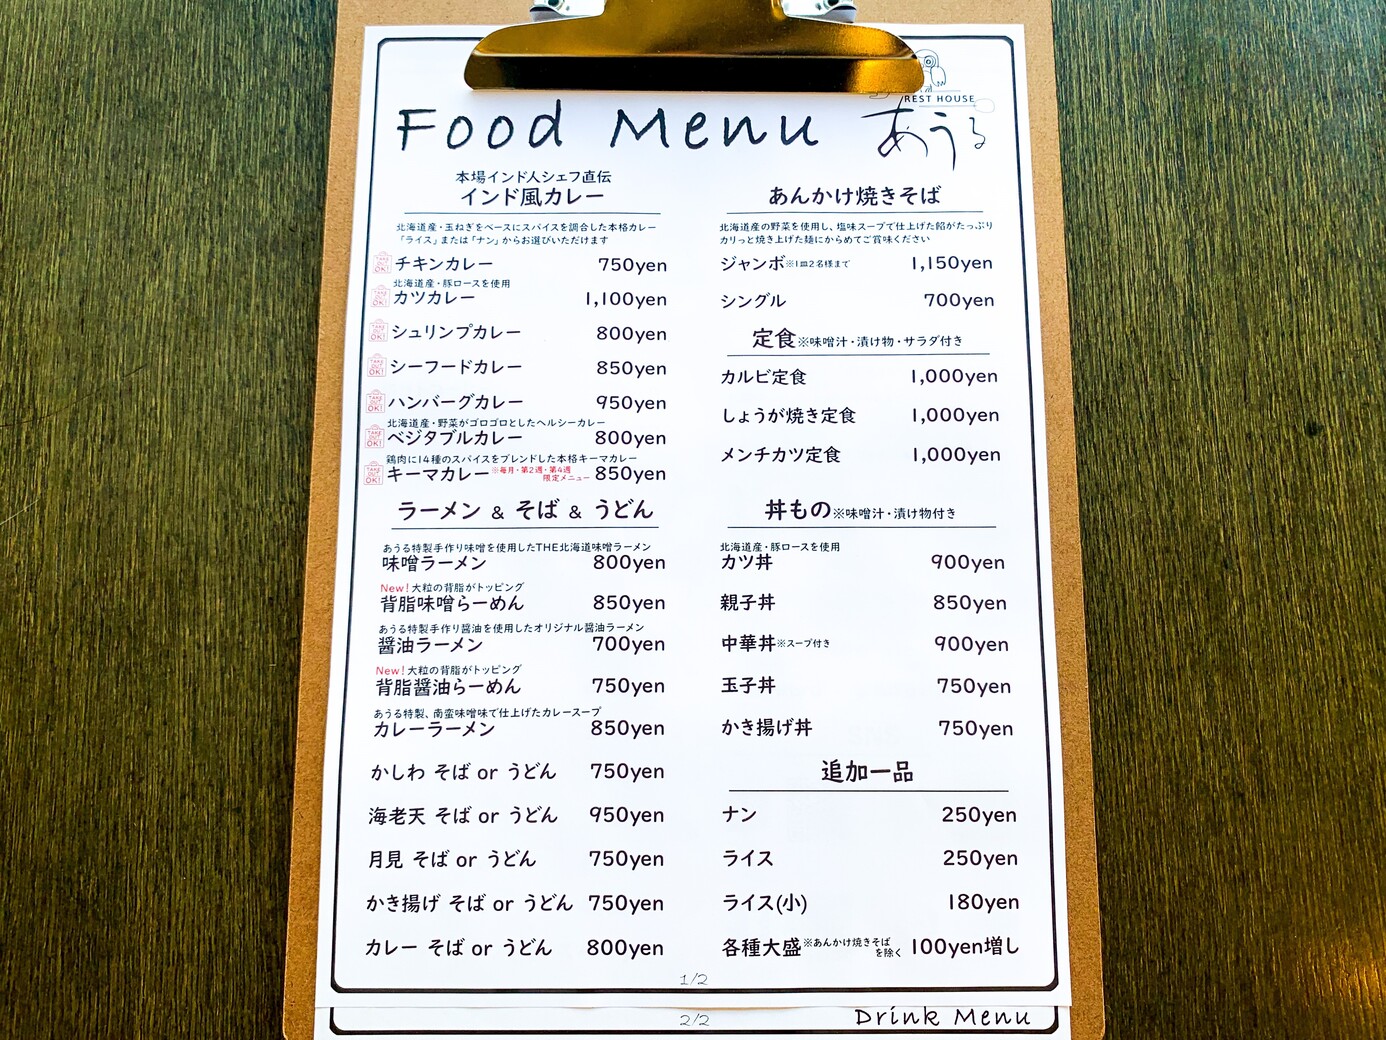 REST HOUSE
あうる
Food Menu
本場インド人シェフ直伝
インド風カレー
北海道産・玉ねぎをベースにスパイスを調合した本格カレー
「ライス」または「ナン」からお選びいただけます
TAKE OUT OK! チキンカレー 750yen
北海道産・豚ロースを使用
TAKE OUT OK! カツカレー 1,100yen
TAKE OUT OK! シュリンプカレー 800yen
TAKE OUT OK! シーフードカレー 850yen
TAKE OUT OK! ハンバーグカレー 950yen
北海道産・野菜がゴロゴロとしたヘルシーカレー
TAKE OUT OK! ベジタブルカレー 800yen
鶏肉に14種のスパイスをブレンドした本格キーマカレー
TAKE OUT OK! キーマカレー ※毎月・第2週・第4週 限定メニュー 850yen
ラーメン & そば & うどん
あうる特製手作り味噌を使用したTHE北海道味噌ラーメン
味噌ラーメン 800yen
New! 大粒の背脂がトッピング
背脂味噌らーめん 850yen
あうる特製手作り醤油を使用したオリジナル醤油ラーメン
醤油ラーメン 700yen
New! 大粒の背脂がトッピング
背脂醤油らーめん 750yen
あうる特製、南蛮味噌味で仕上げたカレースープ
カレーラーメン 850yen
かしわ そば or うどん 750yen
海老天 そば or うどん 950yen
月見 そば or うどん 750yen
かき揚げ そば or うどん 750yen
カレー そば or うどん 800yen
あんかけ焼きそば
北海道産の野菜を使用し、塩味スープで仕上げた餡がたっぷり
カリっと焼き上げた麺にからめてご賞味ください
ジャンボ ※1皿2名様まで 1,150yen
シングル 700yen
定食 ※味噌汁・漬け物・サラダ付き
カルビ定食 1,000yen
しょうが焼き定食 1,000yen
メンチカツ定食 1,000yen
丼もの ※味噌汁・漬け物付き
北海道産・豚ロースを使用
カツ丼 900yen
親子丼 850yen
中華丼 ※スープ付き 900yen
玉子丼 750yen
かき揚げ丼 750yen
追加一品
ナン 250yen
ライス 250yen
ライス(小) 180yen
各種大盛 ※あんかけ焼きそばを除く 100yen増し
1/2
2/2
Drink Menu